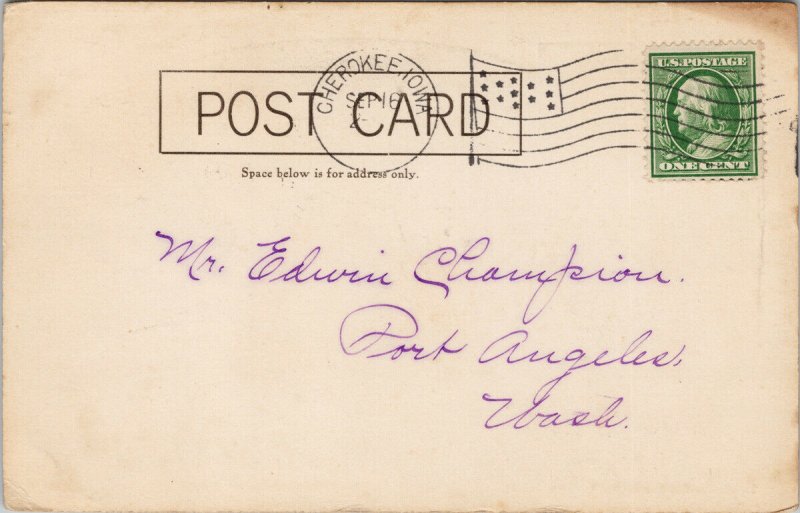 CHEROKEE, IOWA
SEP 16
POST CARD
U.S. POSTAGE
ONE CENT
Space below is for address only.
Mr. Edwin Champion.
Port Angeles,
Wash.